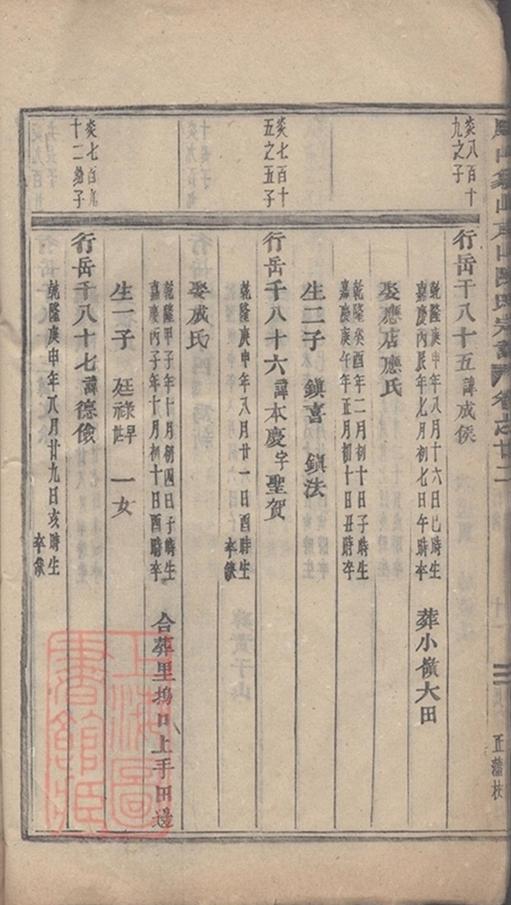 炎八百十
九之子
行岳千八十五諱成侯
乾隆庚申年八月十六日巳時生
嘉慶丙辰年七月初七日午時卒
葬小嶺大田
娶應店應氏
乾隆癸酉年二月初十日子時生
嘉慶庚午年五月初十日丑時卒
生二子 鎮喜 鎮法
炎七百十
五之五子
行岳千八十六諱本慶字聖賀
乾隆庚申年八月廿一日酉時生
卒缺
娶成氏
乾隆甲子年十月初四日子時生
嘉慶丙子年十月初十日酉時卒
合葬里塢口上手田邊
生一子 廷祿 一女
炎七百九
十二繼子
行岳千八十七諱德儉
乾隆庚申年八月廿九日亥時生
卒缺
卷之廿二
上海圖
書館藏